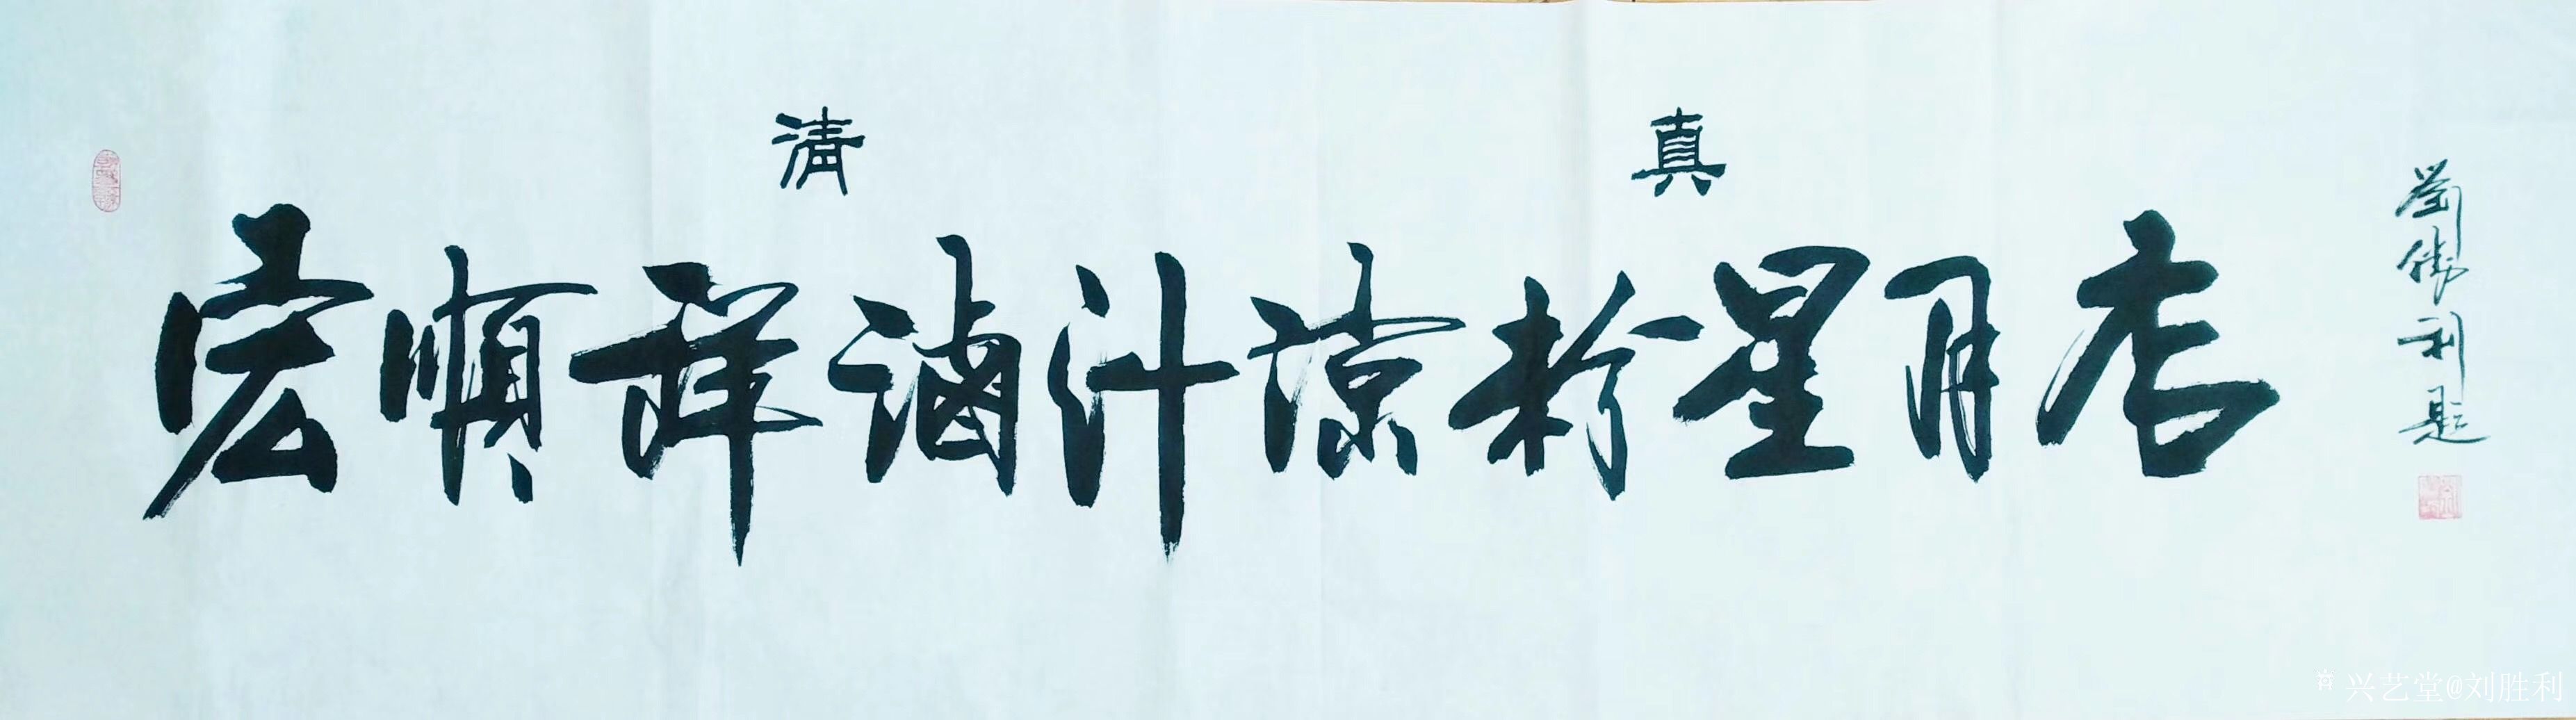 清真
宏順祥滷汁涼粉星月店
劉勝利題
兴艺堂@刘胜利